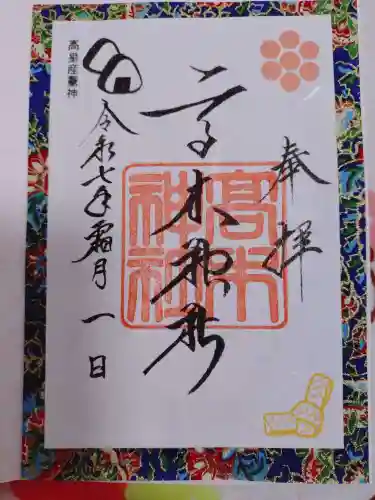 奉拝
高木神社
高木神社
令和七年霜月一日
高皇産靈神